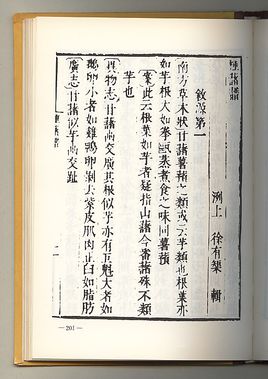 種藷譜
洌上 徐有榘 輯
敘源第一
南方草木狀甘藷薯蕷之類或云芋類也根葉亦
如芋根大如拳甌蒸煮食之味同薯蕷
案此云根葉如芋者疑指山藷今番藷殊不類
芋也
異物志甘藷出交廣其根似芋亦有巨魁大者如
鵝卵小者如雞鴨卵剝去紫皮肌肉正白如脂肪
廣志甘藷似芋出交趾
— 201 —